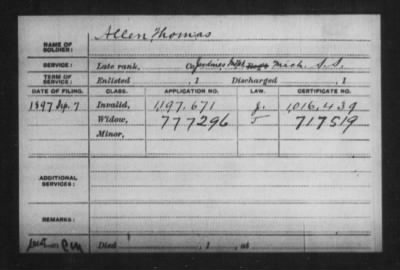 Allen Thomas
NAME OF SOLDIER:
SERVICE: Late rank, Co. Mich. S.S.
TERM OF SERVICE: Enlisted , 1 Discharged , 1
DATE OF FILING. CLASS. APPLICATION NO. LAW. CERTIFICATE NO.
1897 Sep. 7 Invalid, 1,197,671 1,016,439
Widow, 777296 717519
Minor,
ADDITIONAL SERVICES:
REMARKS:
Died , 1 , at